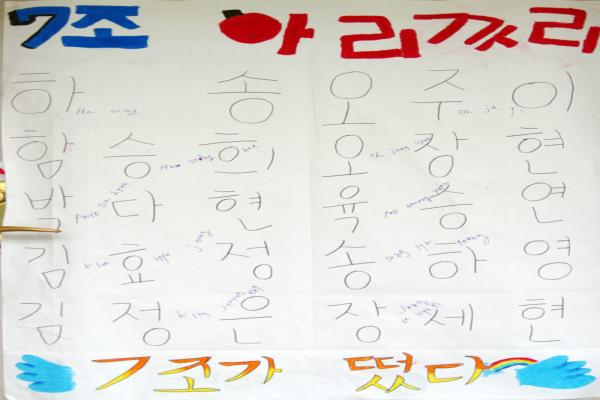 7조 아리까리
하 Ha song 송 오 주 oh ju i 이
함 승 Ham seung hee 희 오 oh jang hyun 장 현
박 Park da hyun 다 현 육 yuk seung yeon 승 연
김 kim 효 hyo jung 정 송 song ha 하 young 영
김 정 kim 은 장 세 현
7조가 떴다